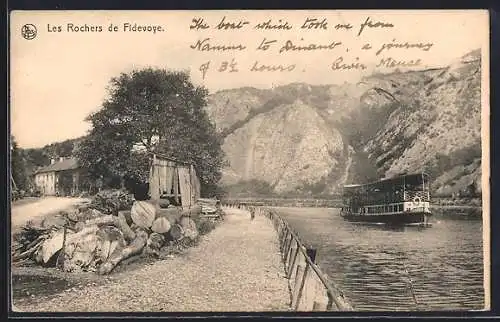 Les Rochers de Fidevoye.
The boat which took me from
Namur to Dinant, a journey
of 3½ hours. River Meuse